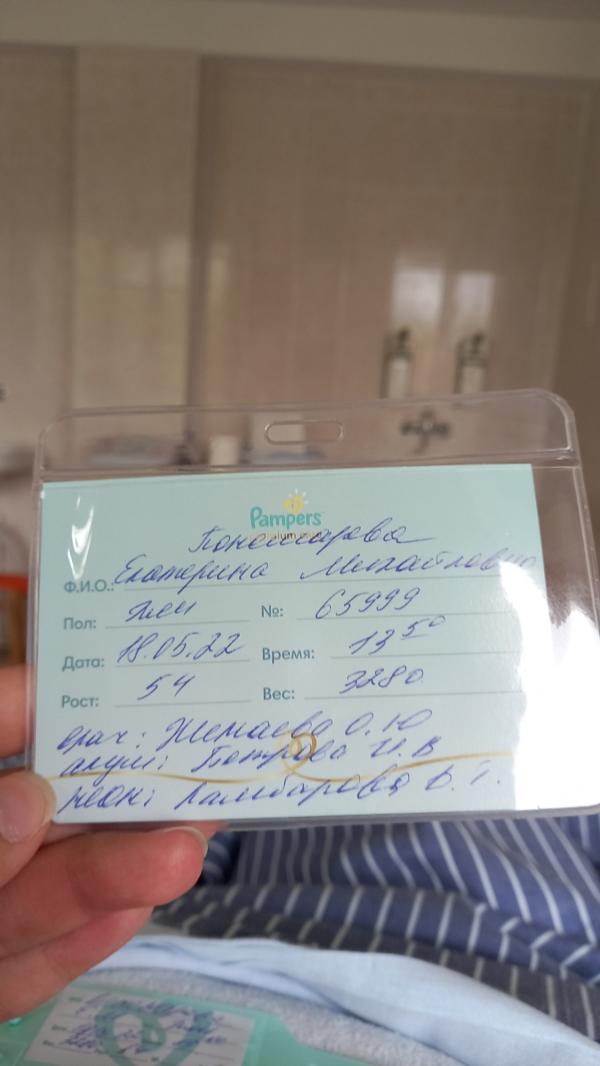 Pampers
Пономарева
Ф.И.О.: Екатерина Михайловна
Пол: жен №: 65999
Дата: 18.05.22 Время: 13 50
Рост: 54 Вес: 3280
врач: О.Ю
акуш: Петрова И.В
неон: В.Т.